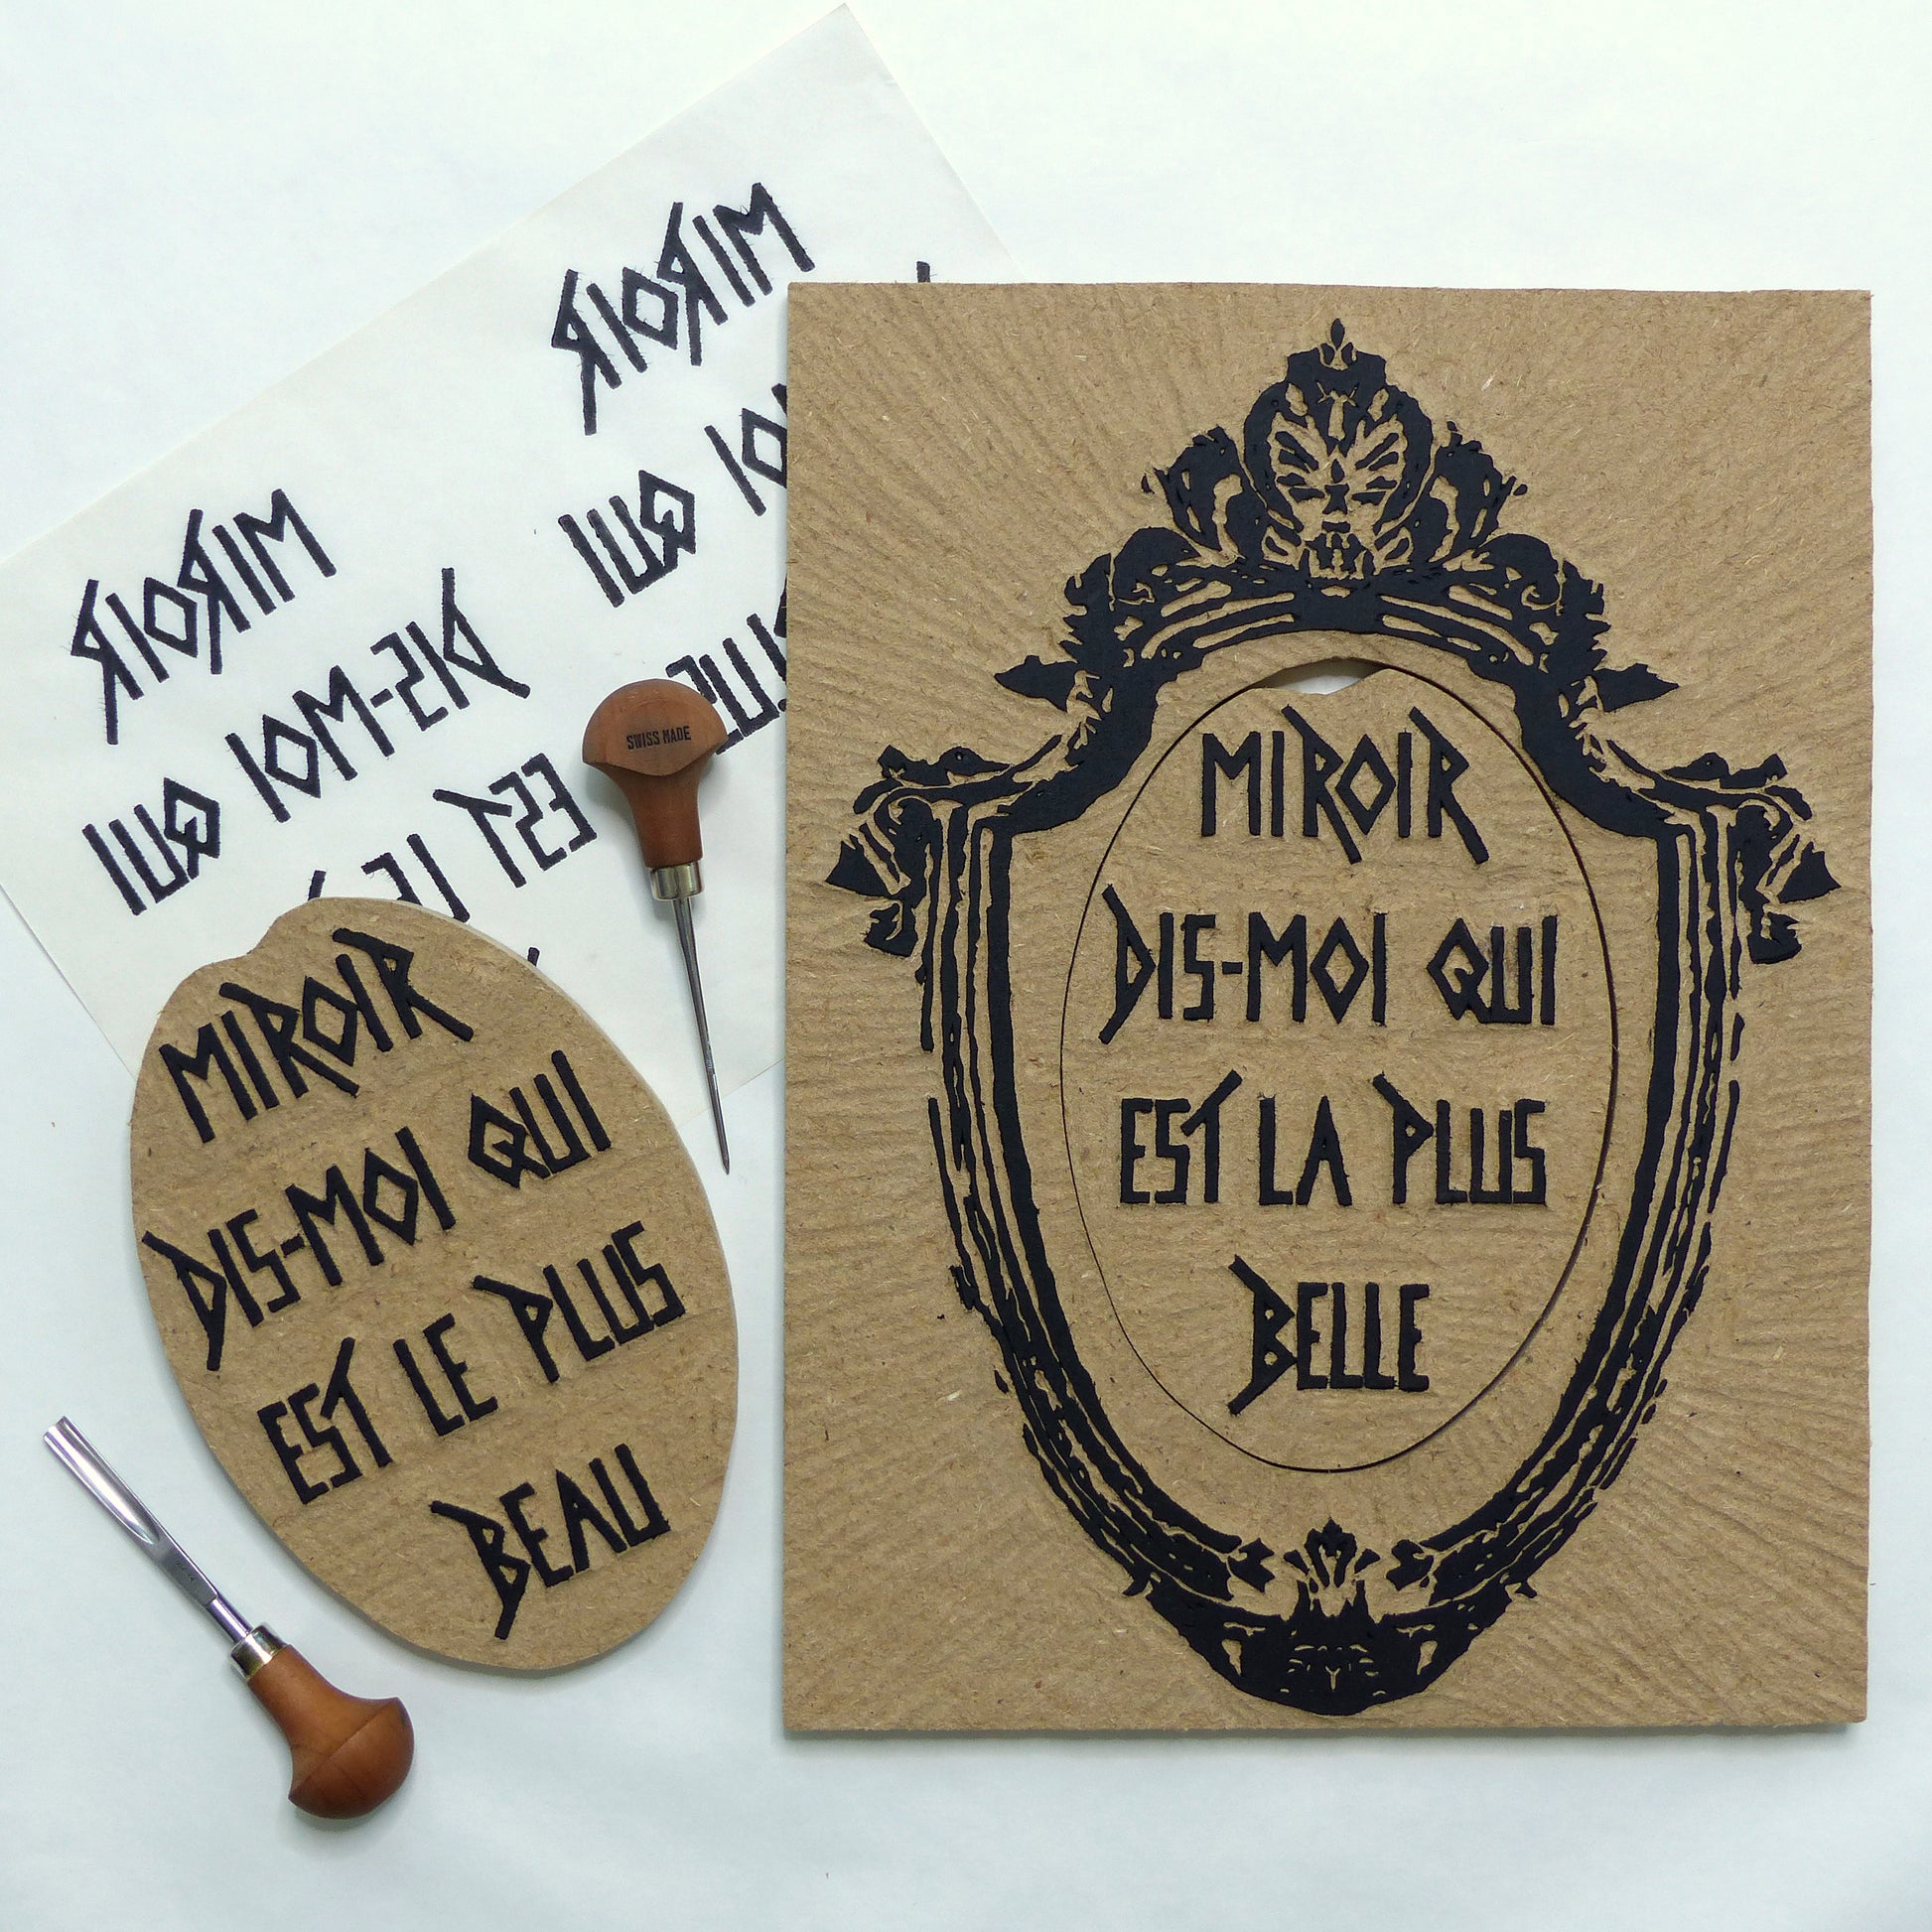 MIROIR
MIROIR
DIS-MOI QUI
QUI
EST LE
SWISS MADE
MIROIR
DIS-MOI QUI
EST LE PLUS
BEAU
MIROIR
DIS-MOI QUI
EST LA PLUS
BELLE